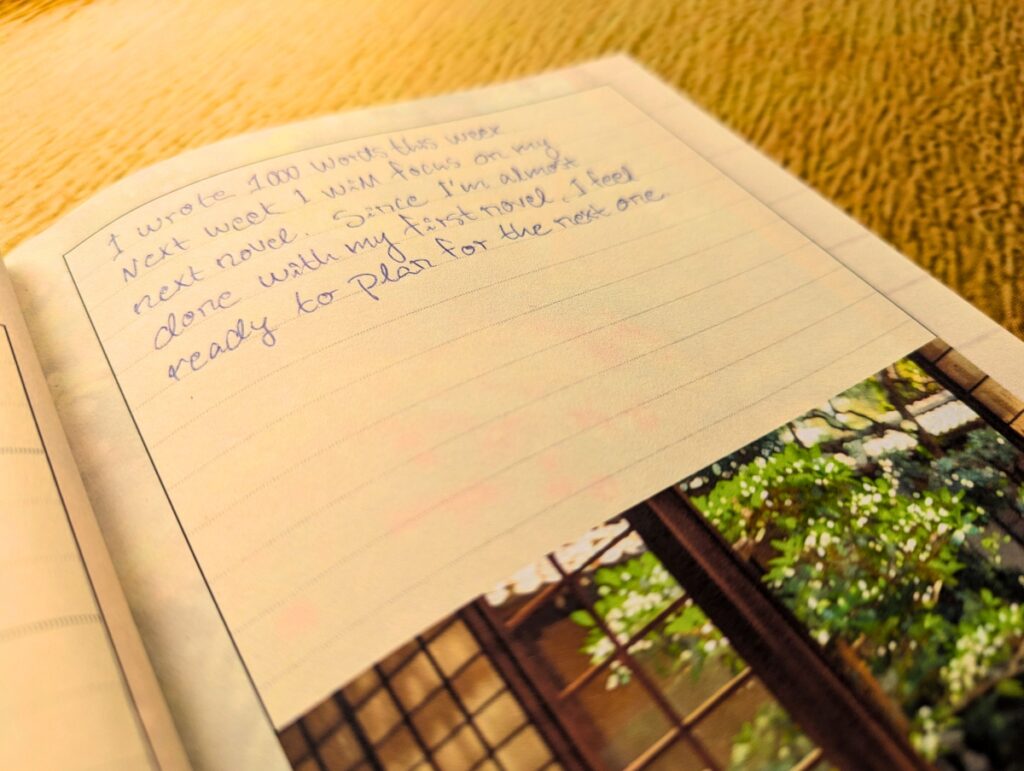 I wrote 1000 words this week
Next week I will focus on my
next novel. Since I'm almost
done with my first novel, I feel
ready to plan for the next one.